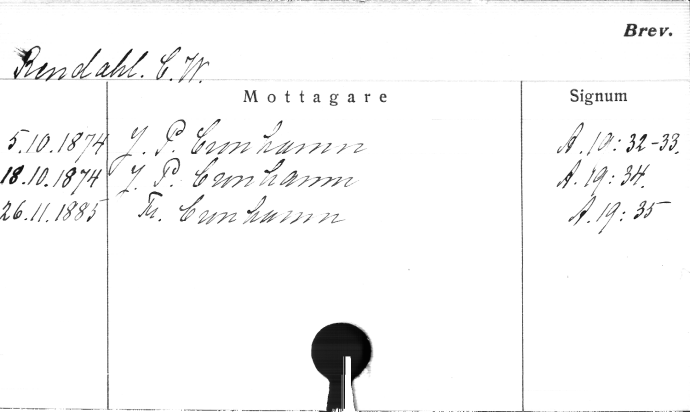 Brev.
Rendahl. C. W.
Mottagare Signum
5.10.1874 J. P. Cronhamn A. 19: 32-33.
18.10.1874 J. P. Cronhamn A. 19: 34.
26.11.1885 Fr. Cronhamn A. 19: 35